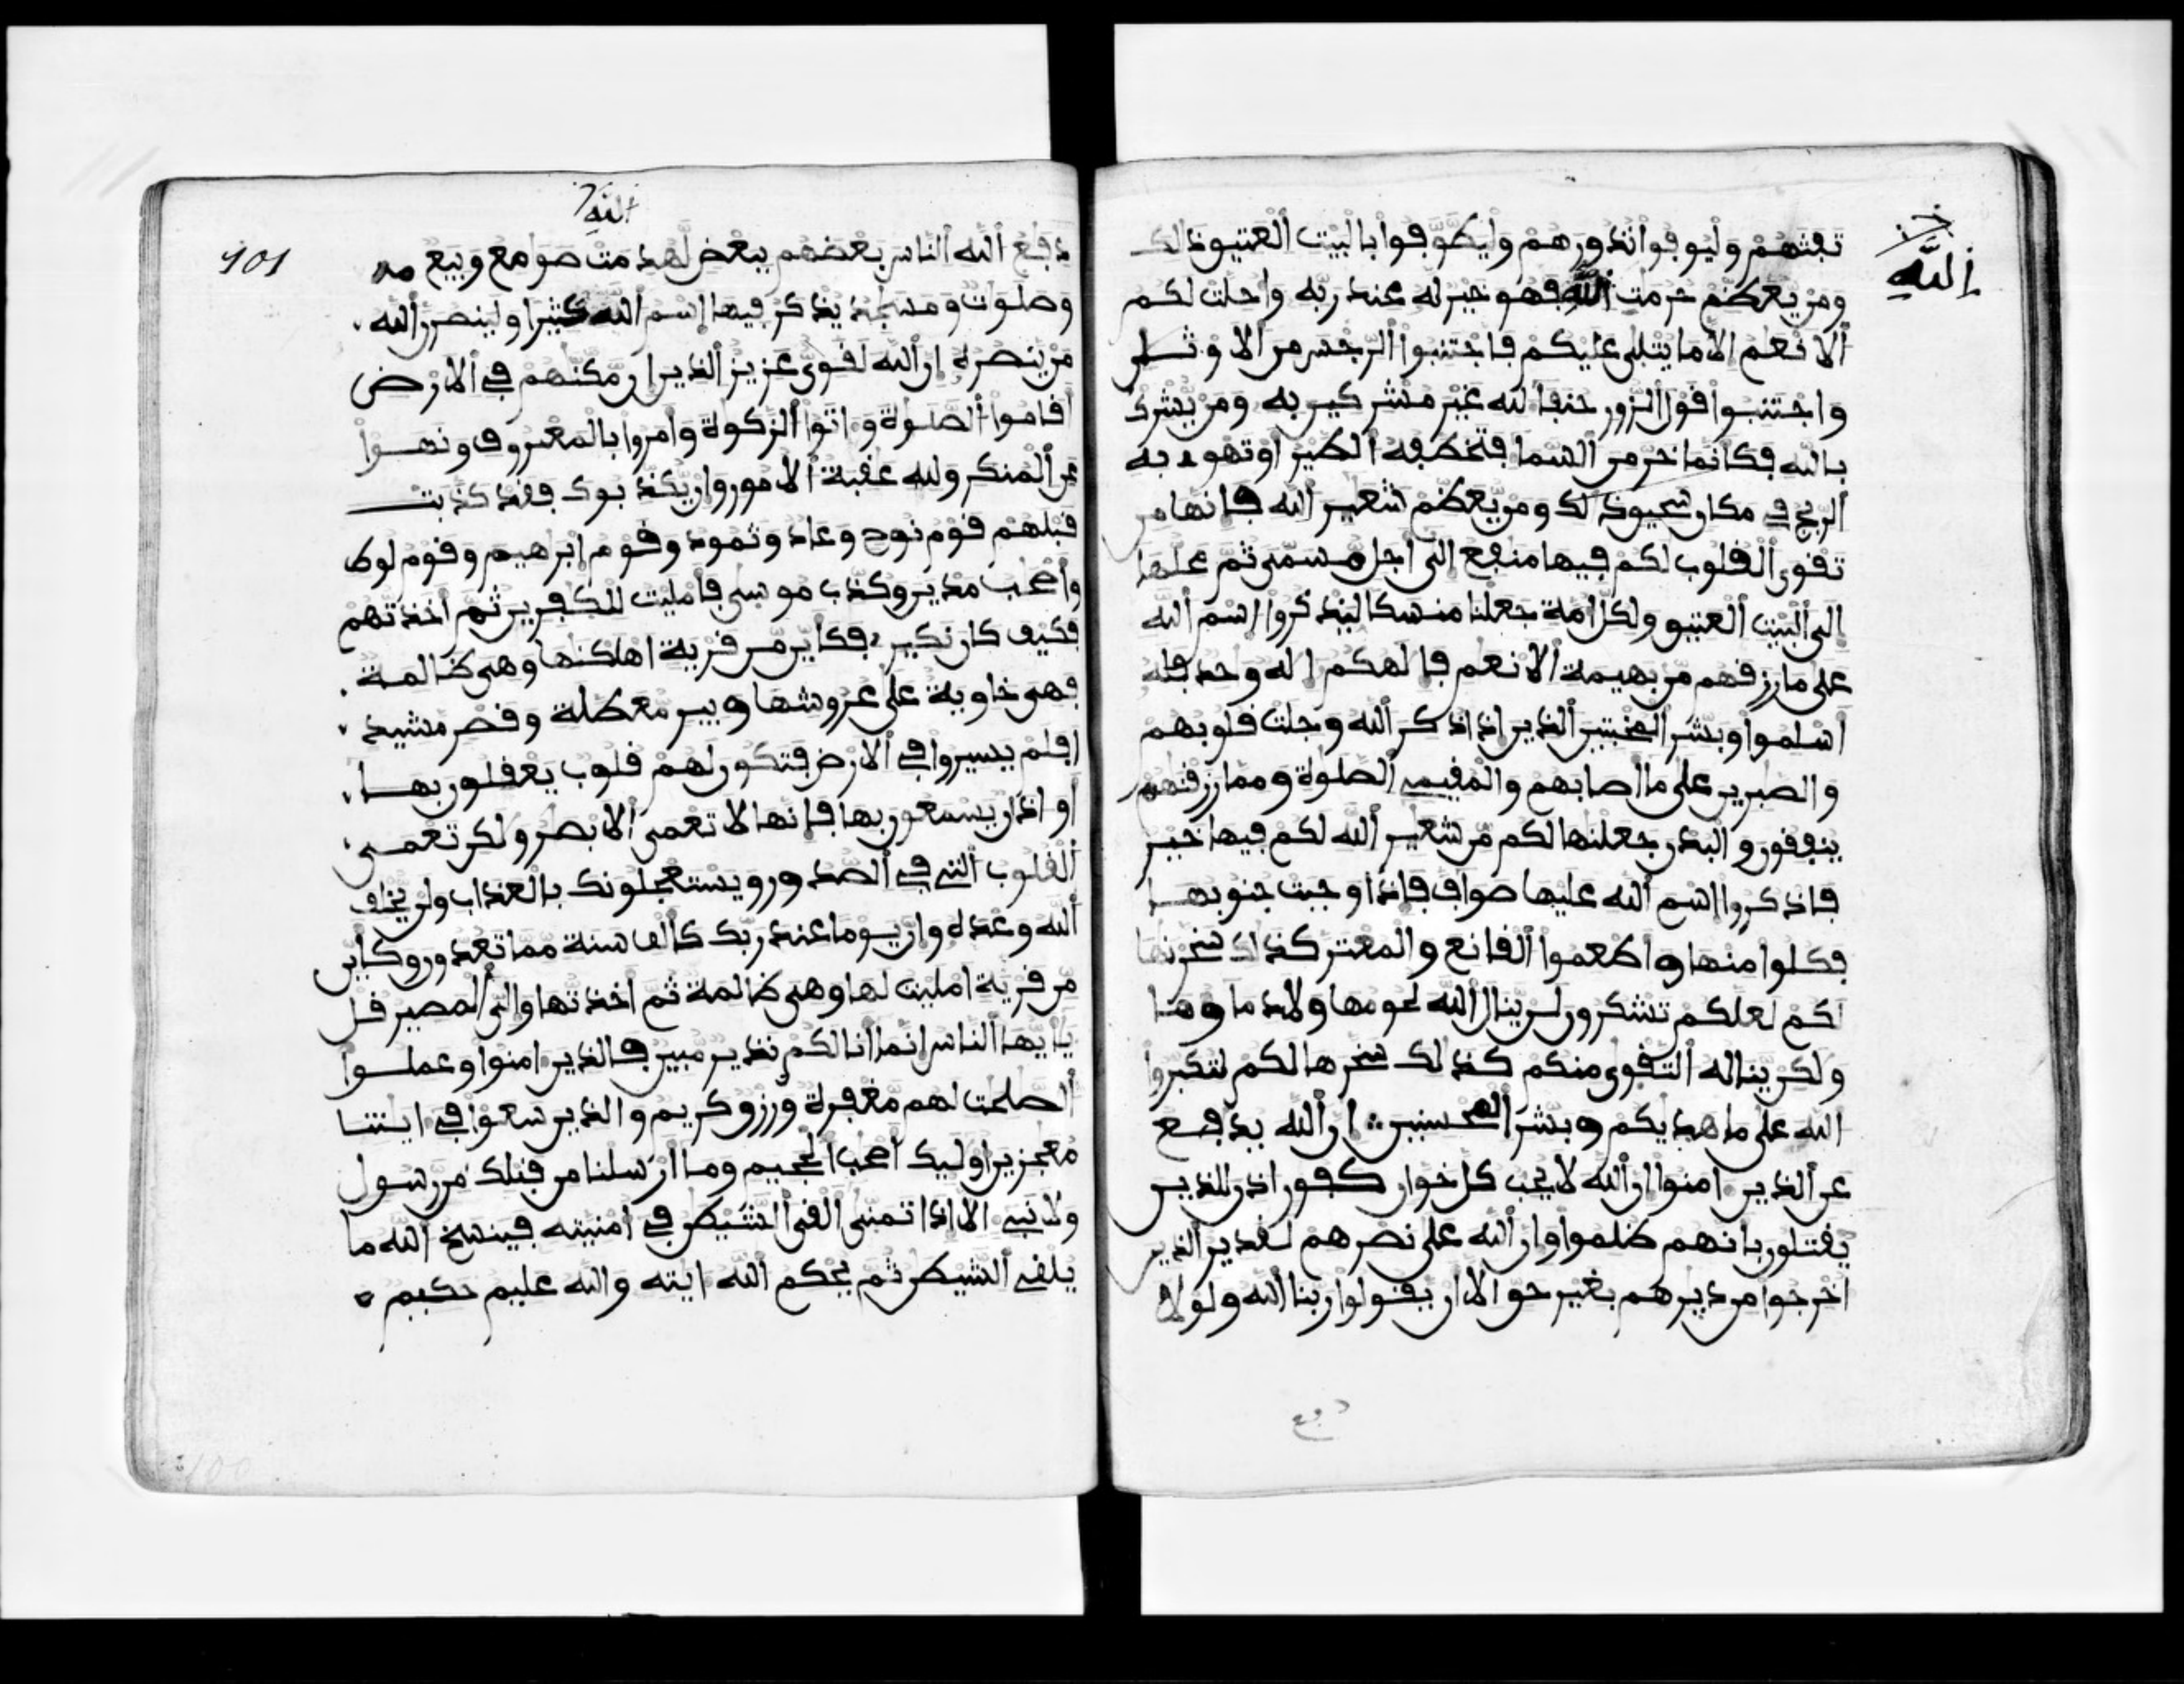 الله
تفثهم وليوفوا نذورهم وليطوفوا بالبيت العتيق ذلك
ومن يعظم حرمت الله فهو خير له عند ربه واحلت لكم
الانعم الا ما يتلى عليكم فاجتنبوا الرجس من الاوثـن
واجتنبوا قول الزور حنفا لله غير مشركين به ومن يشرك
بالله فكانما خر من السما فتخطفه الطير او تهوى به
الريح في مكان سحيق ذلك ومن يعظم شعير الله فانها من
تقوى القلوب لكم فيها منفع الى اجل مسمى ثم محلها
الى البيت العتيق ولكل امة جعلنا منسكا ليذكروا اسم الله
على ما رزقهم من بهيمة الانعم فالهكم اله وحد فله
اسلموا وبشر المخبتين الذين اذا ذكر الله وجلت قلوبهم
والصبرين على ما اصابهم والمقيمي الصلوة ومما رزقنهم
ينفقون والبدن جعلنها لكم من شعير الله لكم فيها خير
فاذكروا اسم الله عليها صواف فاذا وجبت جنوبها
فكلوا منها واطعموا القانع والمعتر كذلك سخرنها
لكم لعلكم تشكرون لن ينال الله لحومها ولا دماوها
ولكن يناله التقوى منكم كذلك سخرها لكم لتكبروا
الله على ما هديكم وبشر المحسنين ان الله يدفع
عن الذين امنوا ان الله لا يحب كل خوان كفور اذن للذين
يقتلون بانهم ظلموا وان الله على نصرهم لقدير الذين
اخرجوا من ديرهم بغير حق الا ان يقولوا ربنا الله ولولا
دفع
الله
101
دفع الله الناس بعضهم ببعض لهدمت صومع وبيع
وصلوت ومسجد يذكر فيها اسم الله كثيرا ولينصرن الله
من ينصره ان الله لقوي عزيز الذين ان مكنهم في الارض
اقاموا الصلوة واتوا الزكوة وامروا بالمعروف ونهـوا
عن المنكر ولله عقبة الامور وان يكذبوك فقد كذبت
قبلهم قوم نوح وعاد وثمود وقوم ابرهيم وقوم لوط
واصحب مدين وكذب موسى فامليت للكفرين ثم اخذتهم
فكيف كان نكير فكاين من قرية اهلكنها وهى ظالمة
فهى خاوية على عروشها وبير معطلة وقصر مشيد
افلم يسيروا في الارض فتكون لهم قلوب يعقلون بها
او اذان يسمعون بها فانها لا تعمى الابصر ولكن تعمى
القلوب التي في الصدور ويستعجلونك بالعذاب ولن يخلف
الله وعده وان يوما عند ربك كالف سنة مما تعدون وكاين
من قرية امليت لها وهى ظالمة ثم اخذتها والى المصير قل
يايها الناس انما انا لكم نذير مبين فالذين امنوا وعملـوا
الصلحت لهم مغفرة ورزق كريم والذين سعوا في ايتنا
معجزين اوليك اصحب الجحيم وما ارسلنا من قبلك من رسول
ولا نبي الا اذا تمنى القى الشيطن في امنيته فينسخ الله ما
يلقي الشيطن ثم يحكم الله ايته والله عليم حكيم
100